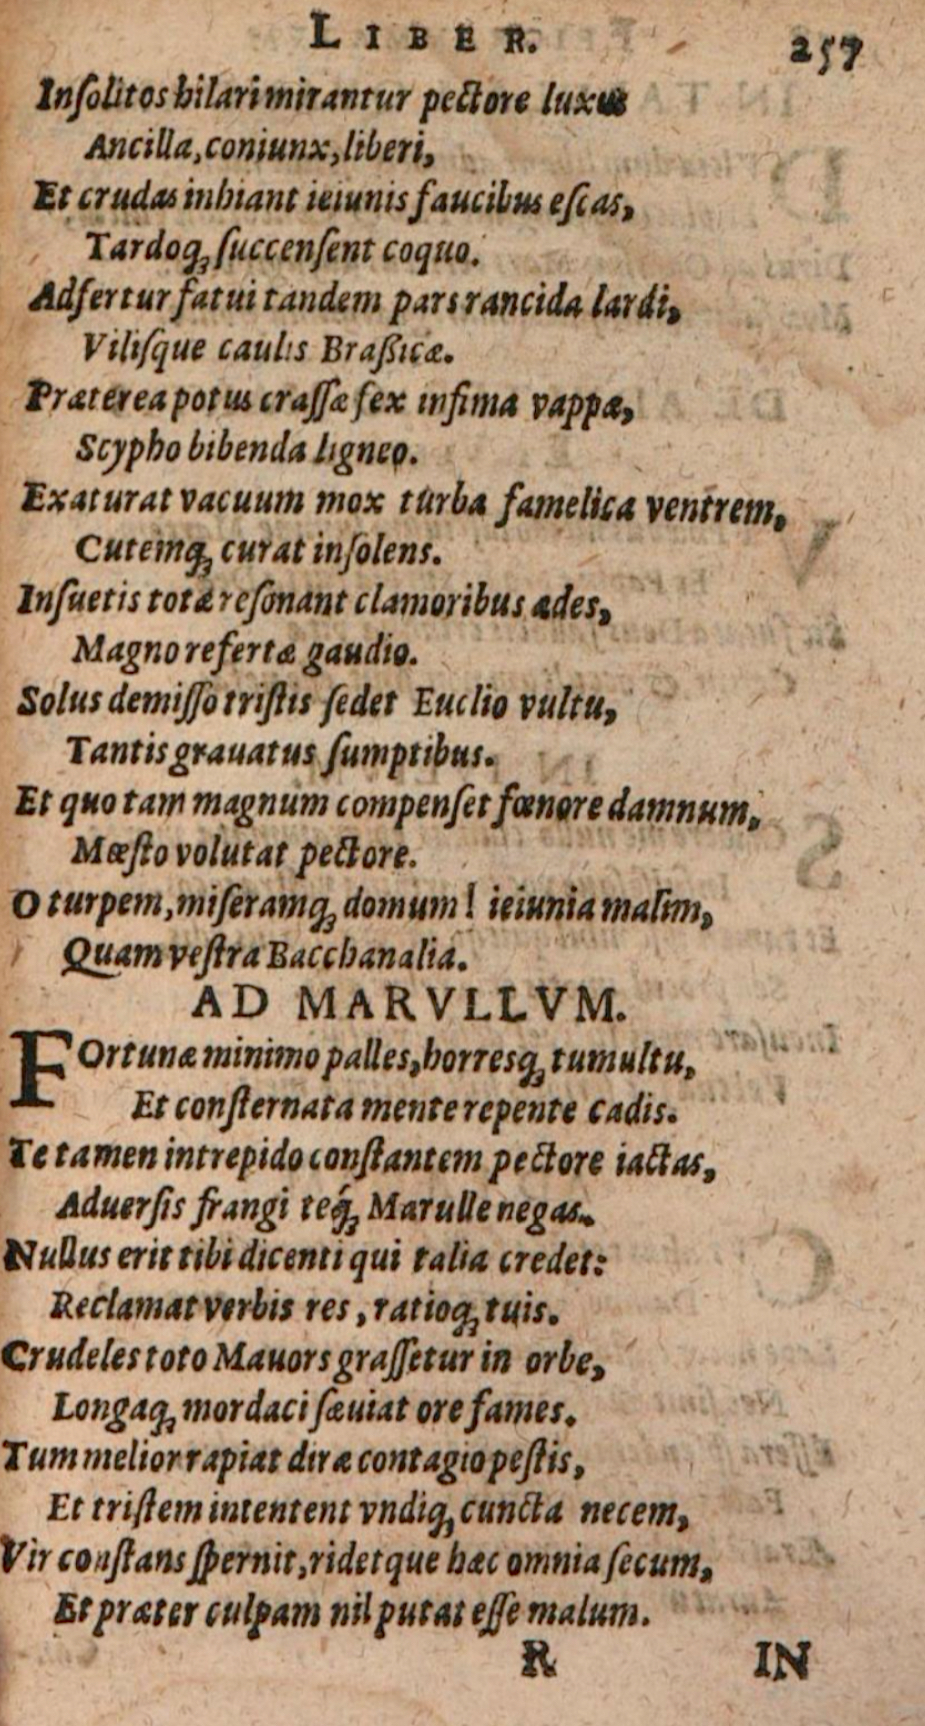 LIBER. 257
Inſolitos hilari mirantur pectore luxus
Ancilla, coniunx, liberi,
Et crudas inhiant ieiunis faucibus eſcas,
Tardoq; ſuccenſent coquo.
Adfertur fatui tandem pars rancida lardi,
Viliſque caulis Braßicæ.
Præterea potus craſſæ fex infima vappæ,
Scypho bibenda ligneo.
Exaturat vacuum mox turba famelica ventrem,
Cutemq; curat inſolens.
Inſuetis totæ reſonant clamoribus ædes,
Magno refertæ gaudio.
Solus demiſſo triſtis ſedet Euclio vultu,
Tantis grauatus ſumptibus.
Et quo tam magnum compenſet fœnore damnum,
Mœſto volutat pectore.
O turpem, miſeramq; domum! ieiunia malim,
Quam veſtra Bacchanalia.
AD MARVLLVM.
FOrtunæ minimo palles, horresq; tumultu,
Et conſternata mente repente cadis.
Te tamen intrepido conſtantem pectore iactas,
Aduerſis frangi teq́; Marulle negas.
Nullus erit tibi dicenti qui talia credet:
Reclamat verbis res, ratioq; tuis.
Crudeles toto Mauors graſſetur in orbe,
Longaq; mordaci ſæuiat ore fames.
Tum melior rapiat diræ contagio peſtis,
Et triſtem intentent vndiq; cuncta necem,
Vir conſtans ſpernit, ridetque hæc omnia ſecum,
Et præter culpam nil putat eſſe malum.
R IN